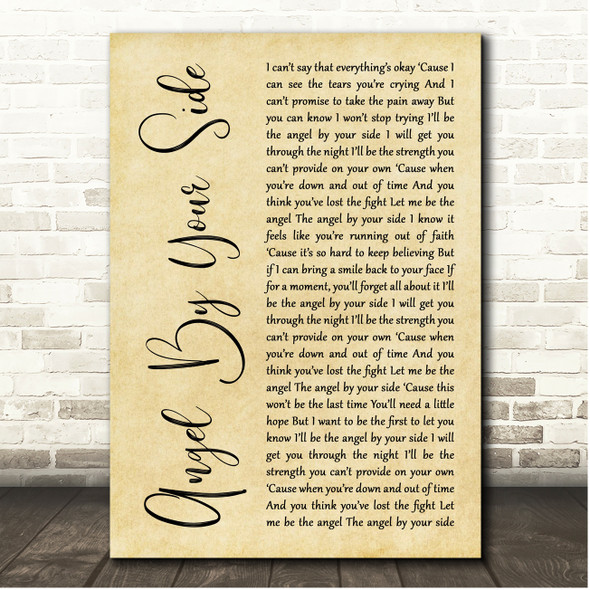 Angel By Your Side
I can't say that everything's okay 'Cause I
can see the tears you're crying And I
can't promise to take the pain away But
you can know I won't stop trying I'll be
the angel by your side I will get you
through the night I'll be the strength you
can't provide on your own 'Cause when
you're down and out of time And you
think you've lost the fight Let me be the
angel The angel by your side I know it
feels like you're running out of faith
'Cause it's so hard to keep believing But
if I can bring a smile back to your face If
for a moment, you'll forget all about it I'll
be the angel by your side I will get you
through the night I'll be the strength you
can't provide on your own 'Cause when
you're down and out of time And you
think you've lost the fight Let me be the
angel The angel by your side 'Cause this
won't be the last time You'll need a little
hope But I want to be the first to let you
know I'll be the angel by your side I will
get you through the night I'll be the
strength you can't provide on your own
'Cause when you're down and out of time
And you think you've lost the fight Let
me be the angel The angel by your side